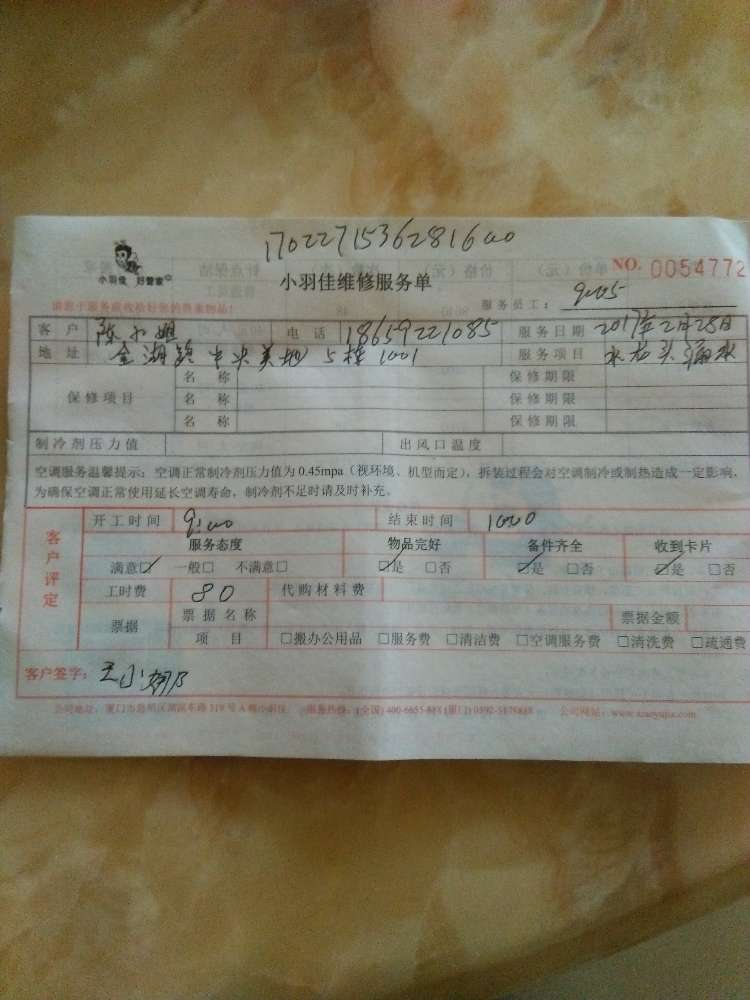 1702271536281600
小羽佳 好管家
小羽佳维修服务单
NO. 0054772
服务员工： 9005
客户 陈小姐 电话 18659221085 服务日期 2017年2月28日
地址 金湖路中央美地5栋1001 服务项目 水龙头漏水
保修项目
名称 保修期限
名称 保修期限
名称 保修期限
制冷剂压力值 出风口温度
空调服务温馨提示：空调正常制冷剂压力值为 0.45mpa（视环境、机型而定），拆装过程会对空调制冷或制热造成一定影响，
为确保空调正常使用延长空调寿命，制冷剂不足时请及时补充。
客户评定
开工时间 9:00 结束时间 1000
服务态度 物品完好 备件齐全 收到卡片
满意☑ 一般□ 不满意□ ☑是 □否 ☑是 □否 ☑是 □否
工时费 80 代购材料费
票据 票据名称 票据金额
项目 □搬办公用品 □服务费 □清洁费 □空调服务费 □清洗费 □疏通费
客户签字：
公司地址：厦门市思明区 服务热线：(全国) 公司网站：www.xiaoyujia.com